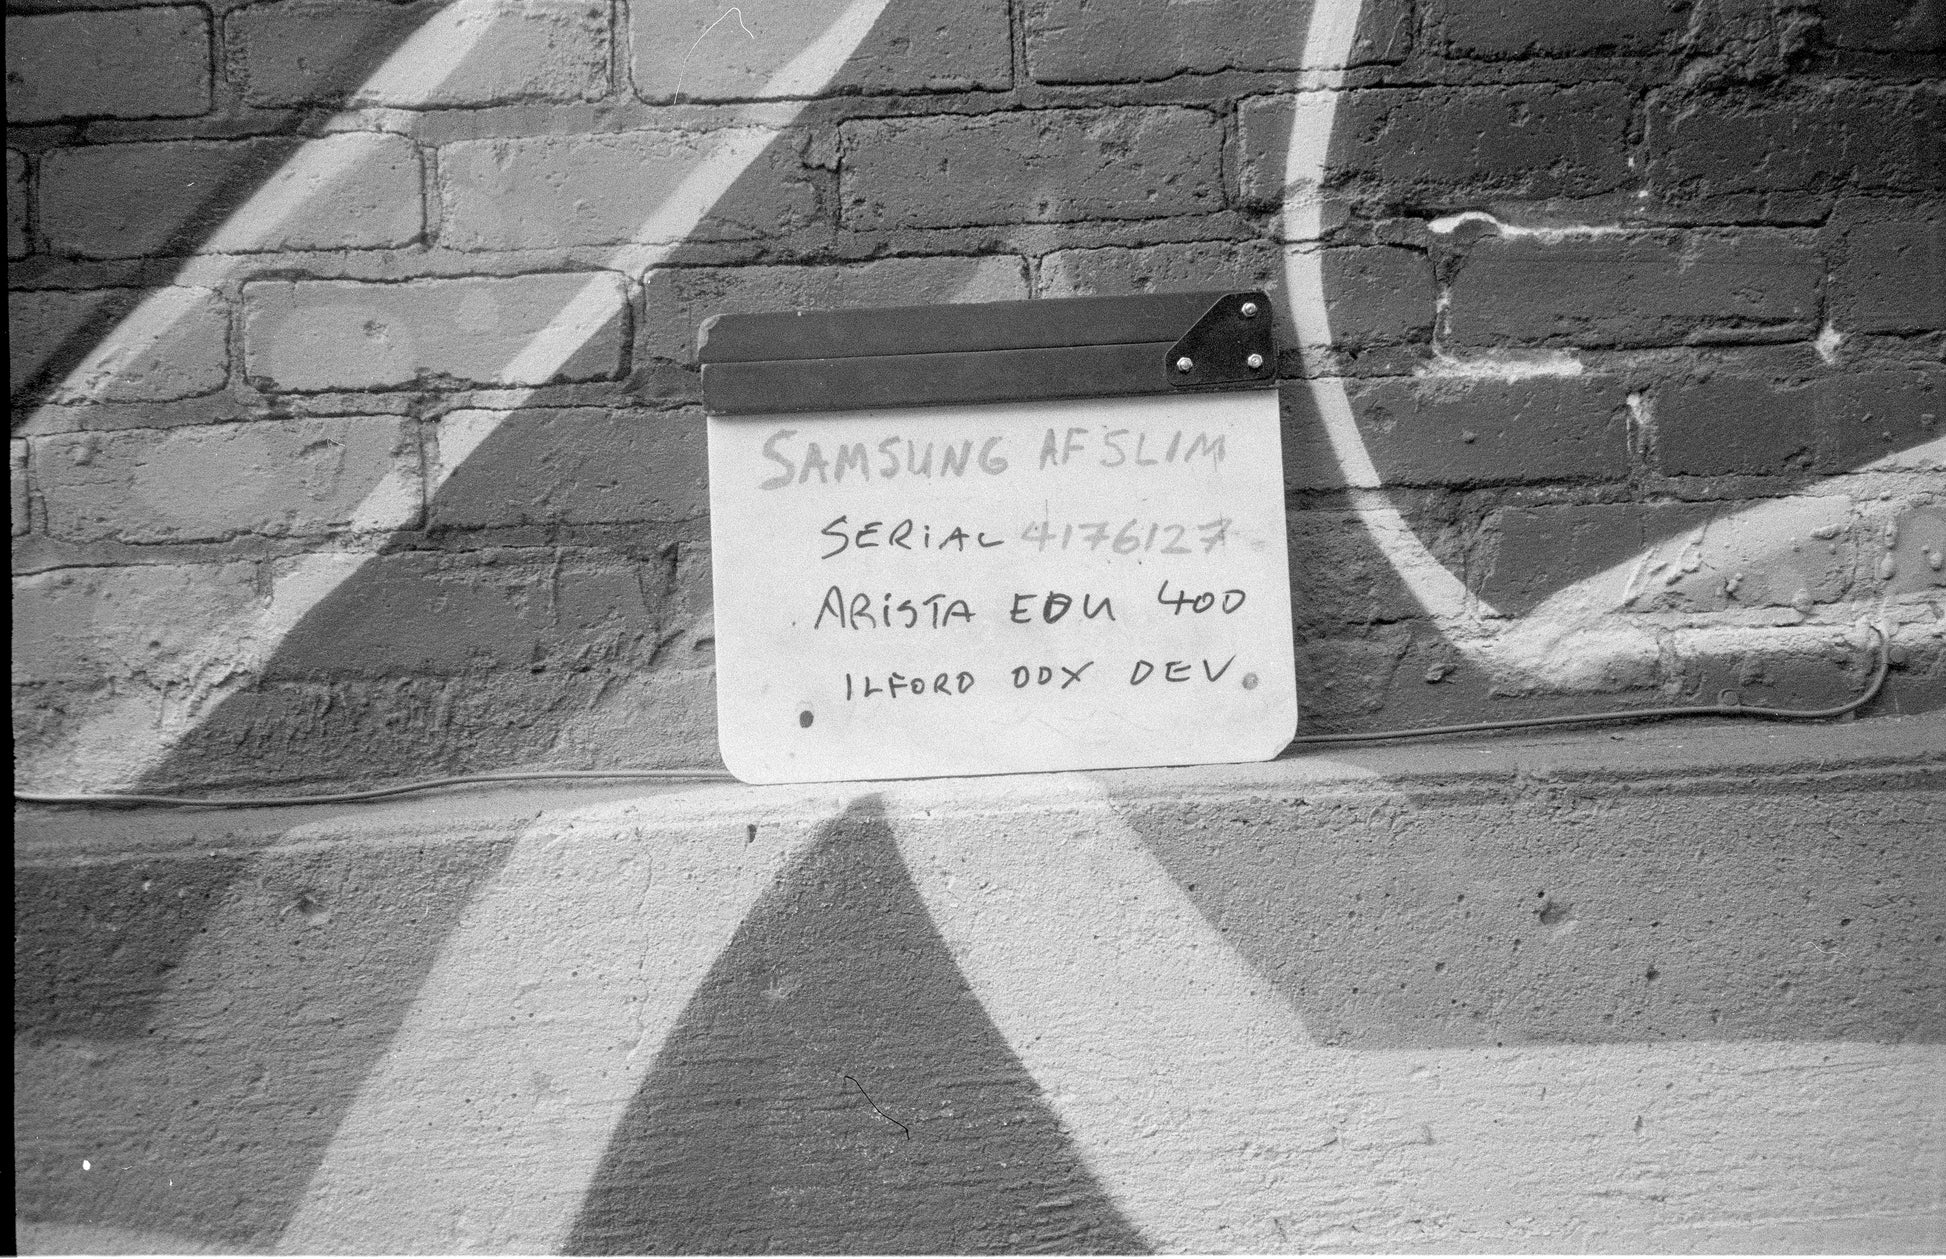 SAMSUNG AF SLIM
SERIAL 4176127
ARISTA EDU 400
ILFORD DDX DEV.